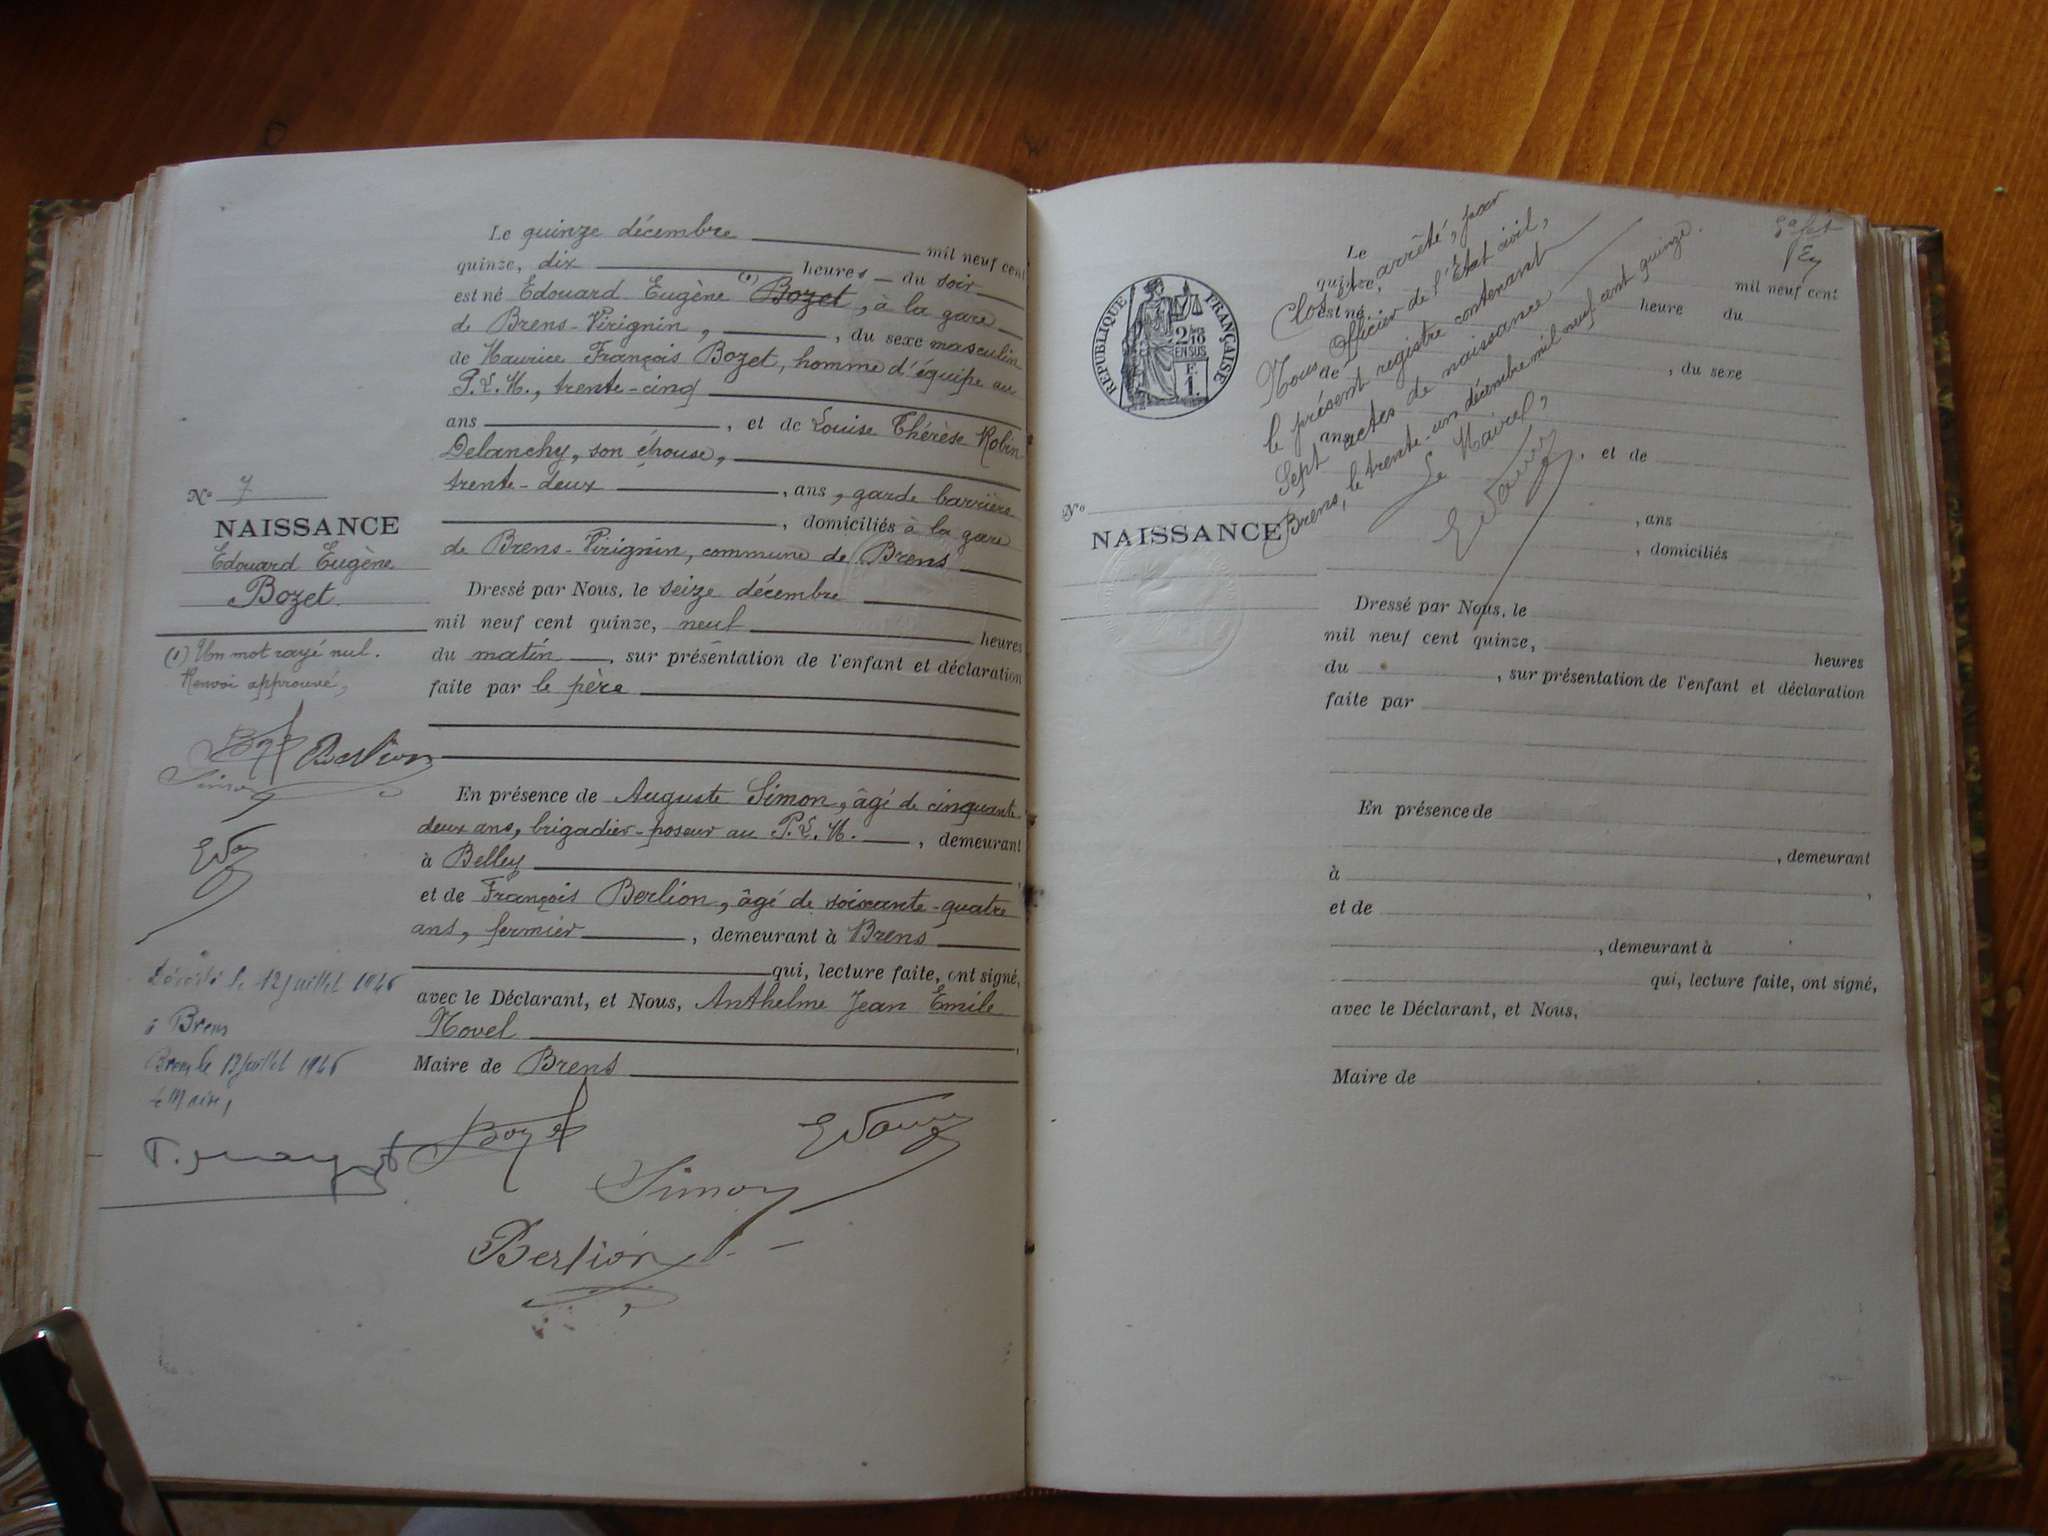 Le quinze décembre mil neuf cent
quinze, dix heures du soir
est né Edouard Eugène (1) Bozet, à la gare
de Brens-Virignin, du sexe masculin
de Maurice François Bozet, homme d'équipe au
P.L.M., trente-cinq
ans, et de Louise Thérèse Robin
Delanchy, son épouse,
trente-deux, ans, garde barrière
, domiciliés à la gare
de Brens-Virignin, commune de Brens
Dressé par Nous, le seize décembre
mil neuf cent quinze, neuf heures
du matin, sur présentation de l'enfant et déclaration
faite par le père
En présence de Auguste Simon, âgé de cinquante
deux ans, brigadier-poseur au P.L.M., demeurant
à Belley,
et de François Berlion, âgé de soixante-quatre
ans, fermier, demeurant à Brens
qui, lecture faite, ont signé,
avec le Déclarant, et Nous, Anthelme Jean Emile
Novel,
Maire de Brens
Bozet
Simon
Berlion
No 7
NAISSANCE
Edouard Eugène
Bozet.
(1) Un mot rayé nul.
Renvoi approuvé,
Bozet Berlion
Simon
Décédé le 12 juillet 1946
à Brens
Brens le 13 juillet 1946
Le Maire,
Clos et arrêté, par
Nous Officier de l'Etat civil,
le présent registre contenant
Sept actes de naissance
Brens, le trente-un décembre mil neuf cent quinze.
Le Maire,
REPUBLIQUE FRANÇAISE
2/10
EN SUS
No
NAISSANCE
Le
mil neuf cent
quinze,
heure du
est né
, du sexe
de
ans
, et de
, ans
, domiciliés
Dressé par Nous, le
mil neuf cent quinze, heures
du , sur présentation de l'enfant et déclaration
faite par
En présence de
, demeurant
à ,
et de
, demeurant à
qui, lecture faite, ont signé,
avec le Déclarant, et Nous,
Maire de